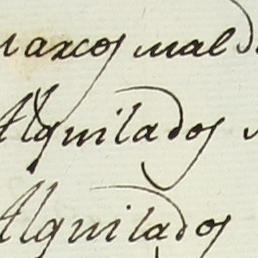 Marcos mald
Alquilados
Alquilados